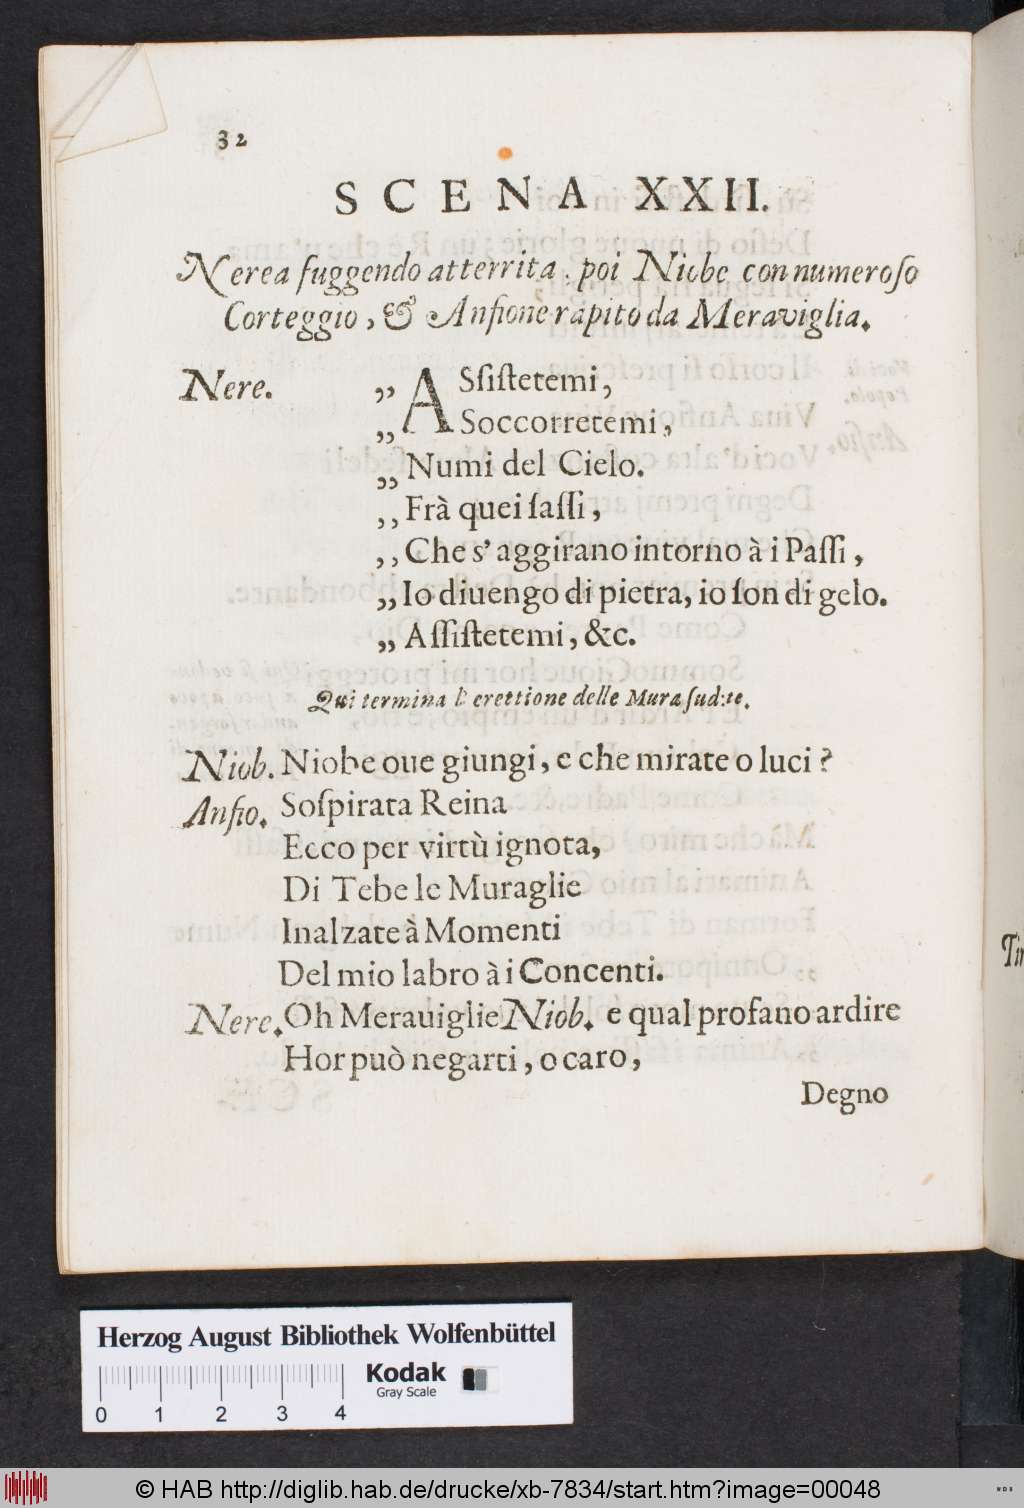 32
SCENA XXII.
Nerea fuggendo atterrita, poi Niobe con numeroſo
Corteggio, & Anfione rapito da Meraviglia.
Nere. „ ASſiſtetemi,
„ Soccorretemi,
„ Numi del Cielo.
„ Frà quei ſaſſi,
„ Che s' aggirano intorno à i Paſſi,
„ Io diuengo di pietra, io ſon di gelo.
„ Aſſiſtetemi, &c.
Qui termina l' erettione delle Mura ſud:te.
Niob. Niobe oue giungi, e che mirate o luci?
Anfio. Soſpirata Reina
Ecco per virtù ignota,
Di Tebe le Muraglie
Inalzate à Momenti
Del mio labro à i Concenti.
Nere. Oh Merauiglie Niob. e qual profano ardire
Hor può negarti, o caro,
Degno
Herzog August Bibliothek Wolfenbüttel
Kodak
Gray Scale
0 1 2 3 4
© HAB http://diglib.hab.de/drucke/xb-7834/start.htm?image=00048